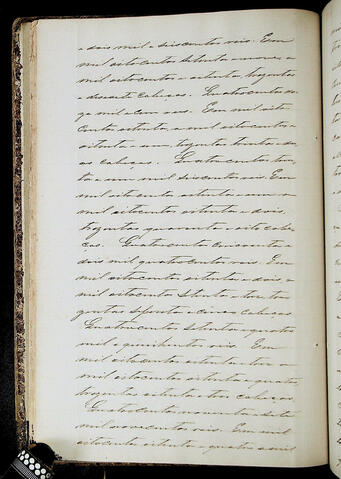 e dois mil e seis centos reis. Em
mil oito centos setenta e nove a
mil oitocentos e oitenta, trezentos
e dezoito cabeças. Quatro centos
mil e cem reis. Em mil oito
centos oitenta, a mil oitocentos e
oitenta e um, trezentos trinta e
as cabeças. Quatro centos trin
ta e um mil seis centos reis. Em
mil oito centos oitenta e um a
mil oitocentos oitenta e dois,
trezentos quarenta e oito cabe
ças. Quatro centos cincoenta e
dois mil quatro centos reis. Em
mil oitocentos oitenta e dois, a
mil oitocentos oitenta e tres, tre
zentos sessenta e cinco cabeças
Quatro centos setenta e quatro
mil e quinhentos reis. Em
mil oitocentos oitenta e tres a
mil oitocentos oitenta e quatro,
trezentos oitenta e tres cabeças
Quatro centos noventa e sete
mil nove centos reis. Em mil
oitocentos oitenta e quatro a mil